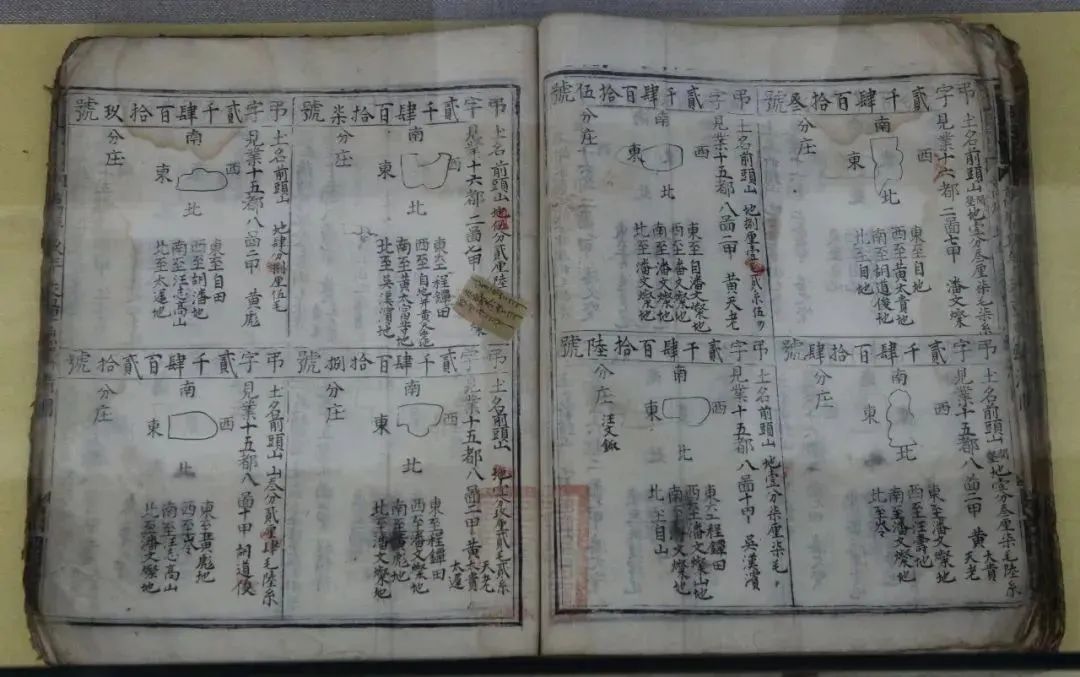 弔字貳千肆百拾叁號
土名前頭山
地壹分叁厘柒毛柒系
見業十六都二啚七甲 潘文燦
分庄
南
東
西
北
東至自地
西至黃太貴地
南至胡道俊地
北至自地
弔字貳千肆百拾肆號
土名前頭山
地壹分叁厘柒毛陸系
見業十五都八啚二甲 黃太貴 天老
分庄
南
東
西
北
東至潘文燦地
西至汪壽地
南至潘文燦地
北至岑
弔字貳千肆百拾伍號
土名前頭山 地捌厘壹毛貳系伍勿
見業十五都八啚二甲 黃天老
分庄
南
東
西
北
東至自潘文燦地
西至潘文燦地
南至潘文燦地
北至潘文燦地
弔字貳千肆百拾陸號
土名前頭山 地壹分柒厘柒毛
見業十五都八啚十甲 吳漢濱
分庄 汪文
南
東
西
北
東至程鐔田
西至潘文燦山地
南至潘文燦地
北至自山
弔字貳千肆百拾柒號
土名前頭山 地 分貳厘陸
見業十六都二啚七甲
分庄
南
東
西
北
東至程鐔田
西至自地并黃
南至黃太富等地
北至吳漢濱地
弔字貳千肆百拾捌號
土名前頭山 地 分 厘貳毛貳系
見業十五都八啚二甲 黃天老 太貴 太運
分庄
南
東
西
北
東至程鐔田
西至潘文燦地
南至黃彪地
北至潘文燦地
弔字貳千肆百拾玖號
土名前頭山 地肆分捌厘伍毛
見業十五都八啚二甲 黃彪
分庄
南
東
西
北
東至自田
西至胡潘地
南至汪志高山
北至太運地
弔字貳千肆百貳拾號
土名前頭山 山叁分貳厘肆毛陸系
見業十五都八啚十甲 胡道俊
分庄
南
東
西
北
東至黃彪地
西至岑
南至汪志高山
北至潘文燦地